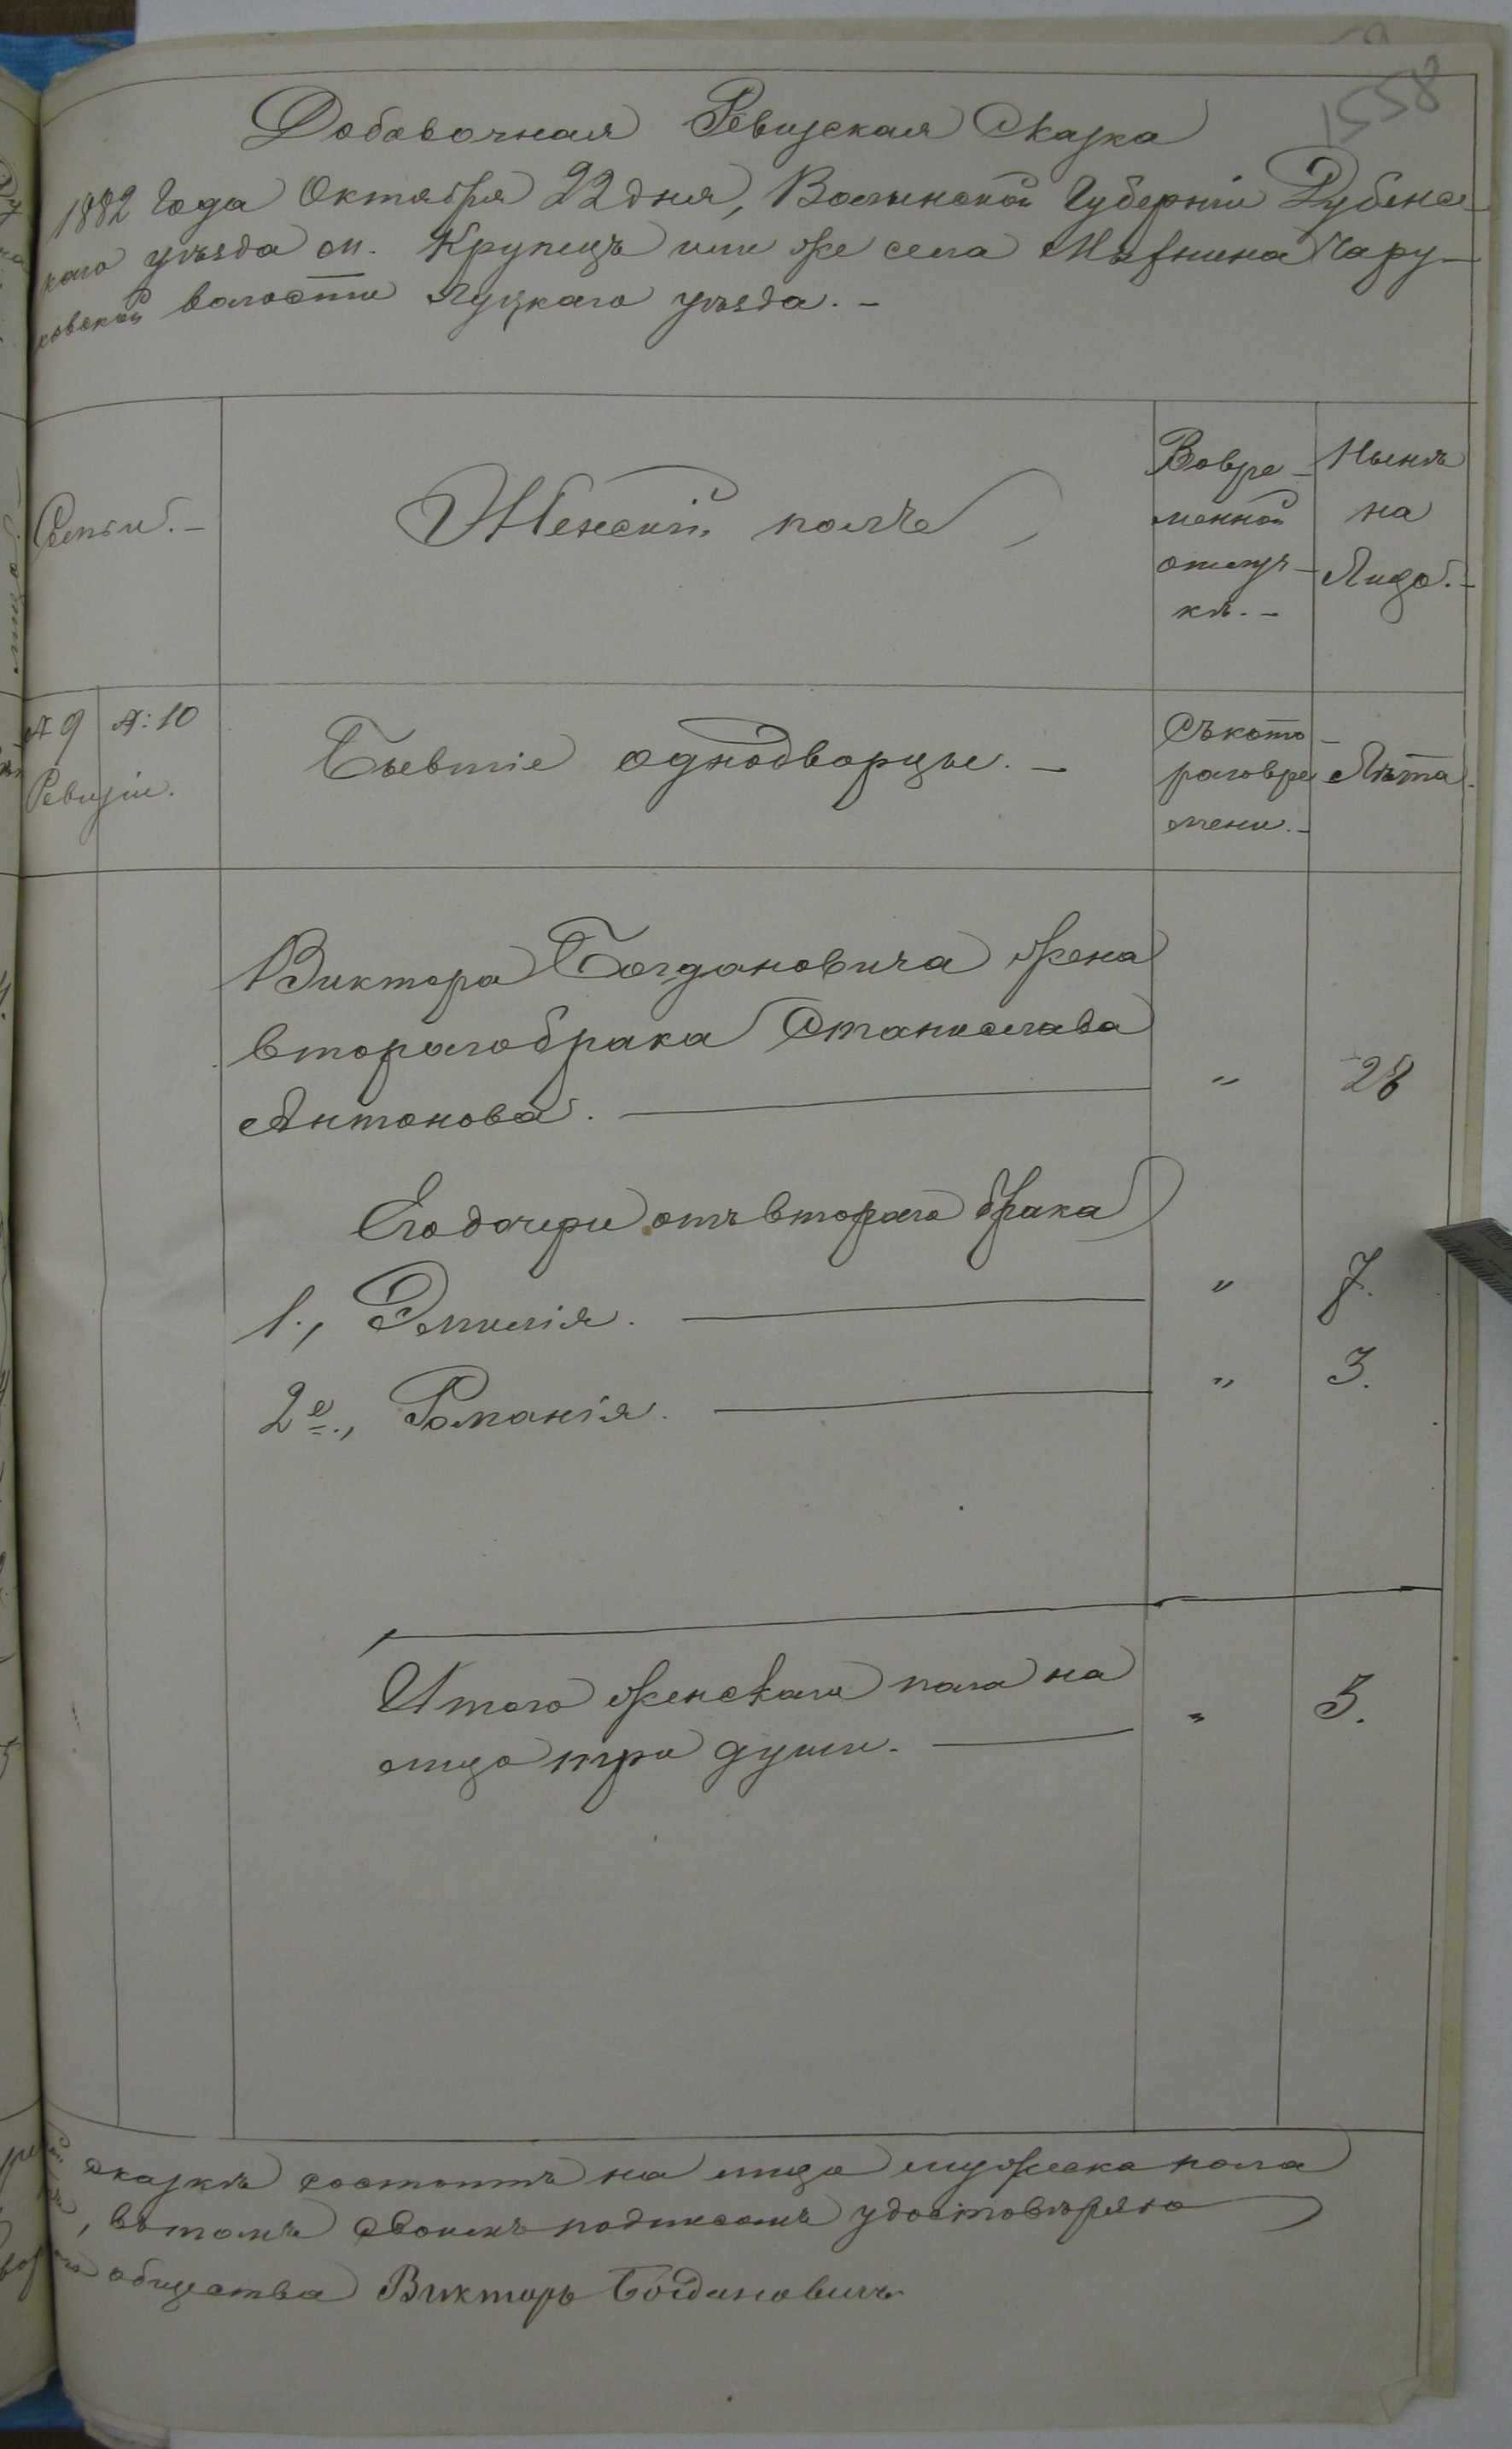 1558
Добавочная Ревизская Сказка
1882 Года Октября 22 дня, Волынской Губерніи Дубенс-
каго уѣзда м. Крупецъ или же села Мятнина Чару-
ковской волости Луцкаго уѣзда. -
Семьи. -
Женскій полъ
Вовре-
менной
отлуч-
кѣ. -
Нынѣ
на
Лицо. -
№ 9
№: 10
Ревизіи.
Бывшіе однодворцы. -
Съкото-
раговре
мени. -
Лѣта.
Виктора Богдановича жена
вторагобрака Станислава
Антонова. " 28
Его дочери отъ втораго брака
1., Эмилія. " 7.
2е., Романія. " 3.
Итого женскаго пола на
лицо три души. " 3.
сказкѣ состоитъ на лицо мужеска пола
, въ томъ своимъ подписомъ удостовѣряю
общества Викторъ Богдановичъ